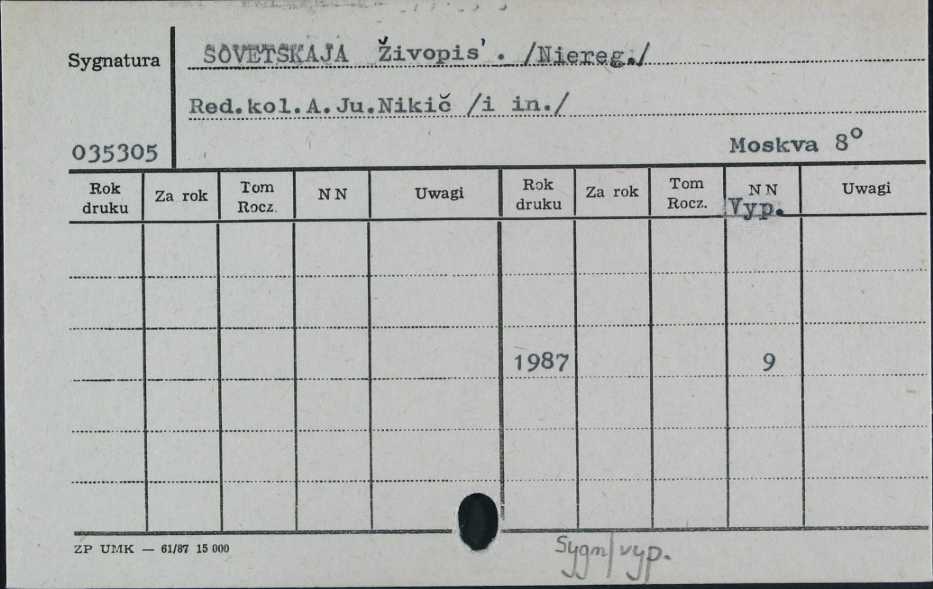 Sygnatura
SOVETSKAJA Živopis'. /Niereg./
Red.kol.A.Ju.Nikič /i in./
035305
Moskva 8°
Rok druku Za rok Tom Rocz. N N Uwagi Rok druku Za rok Tom Rocz. N N Uwagi
Vyp.
1987 9
ZP UMK — 61/87 15 000
Sygn/vyp.